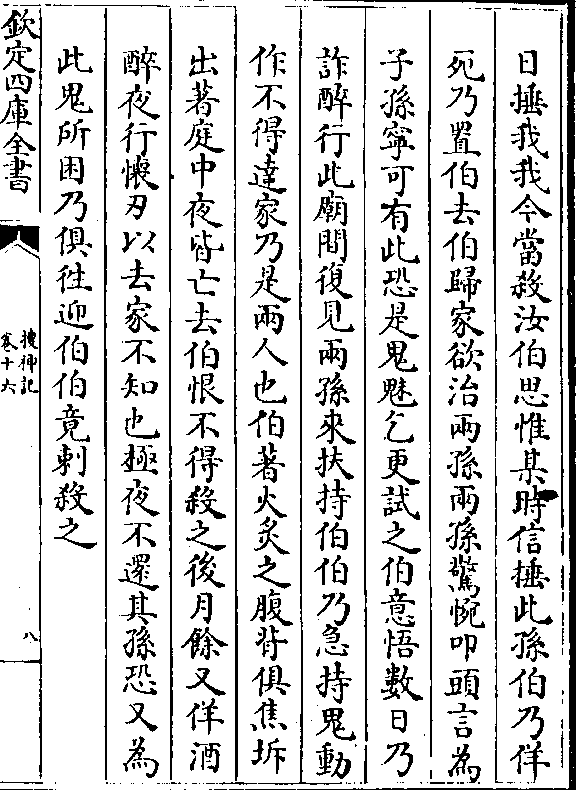 日捶我我今當殺汝伯思惟某時信捶此孫伯乃佯
死乃置伯去伯歸家欲治兩孫兩孫驚惋叩頭言為
子孫寧可有此恐是鬼魅乞更試之伯意悟數日乃
詐醉行此廟間復見兩孫來扶持伯伯乃急持鬼動
作不得達家乃是兩人也伯著火炙之腹背俱焦坼
出著庭中夜皆亡去伯恨不得殺之後月餘又佯酒
醉夜行懷刃以去家不知也極夜不還其孫恐又為
此鬼所困乃俱徃迎伯伯竟刺殺之
欽定四庫全書
搜神記
卷十六
八